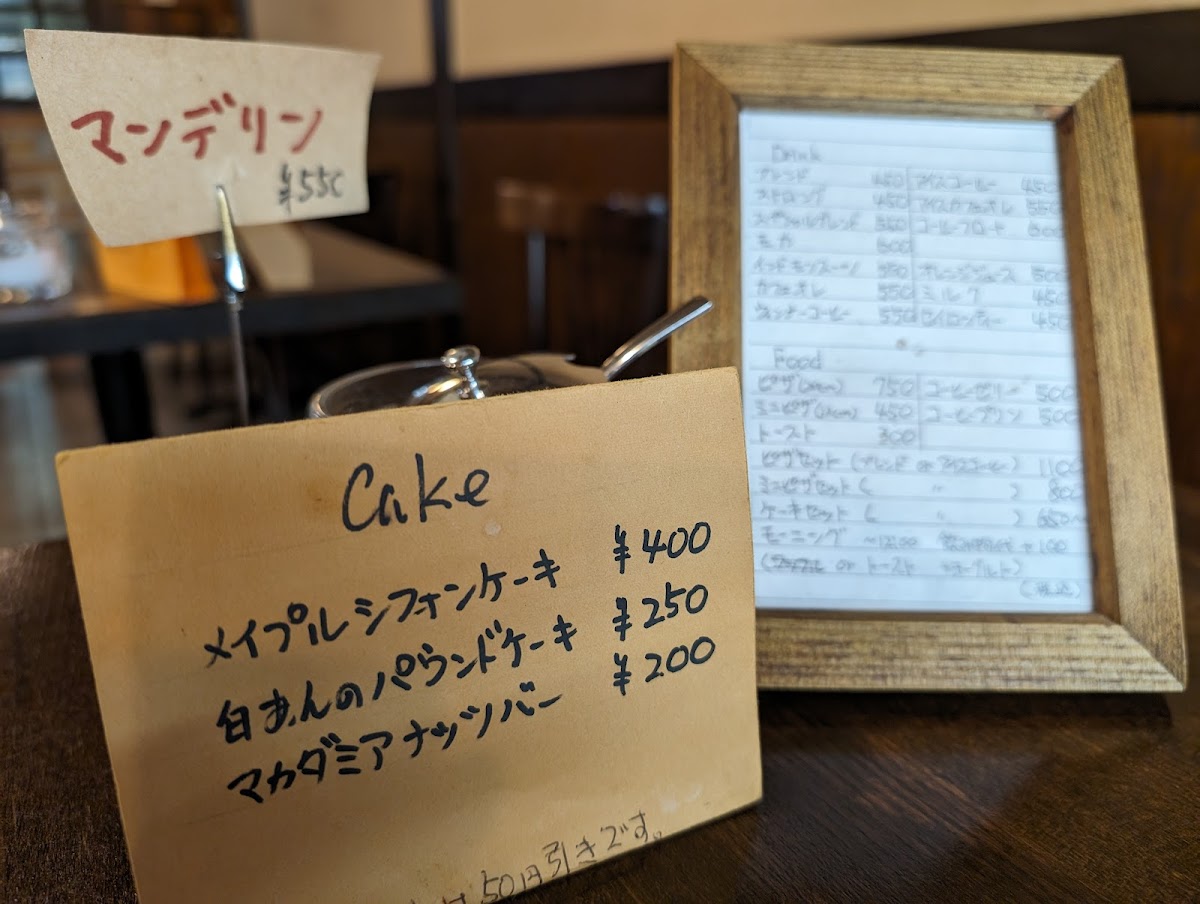 マンデリン
¥550
Cake
メイプルシフォンケーキ ¥400
白あんのパウンドケーキ ¥250
マカダミアナッツバー ¥200
50円引きです。
Drink
ブレンド 450 アイスコーヒー 450
ストロング 450 アイスカフェオレ 550
スペシャルブレンド 550 コーヒーフロート 600
モカ 600
オレンジジュース 500
カフェオレ 550 ミルク 450
ウィンナーコーヒー 550 セイロンティー 450
Food
ピザ 750 コーヒーゼリー 500
ミニピザ 450 コーヒープリン 500
トースト 300
ピザセット (ブレンド or アイスコーヒー) 1100
ミニピザセット ( 〃 ) 800
ケーキセット ( 〃 ) 650~
モーニング ~12:00 +100
or トースト ヨーグルト)
(税込)